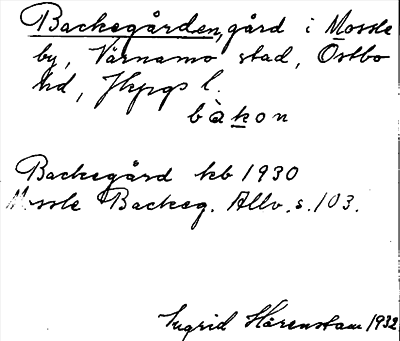 Backegården, gård i Mossle
by, Värnamo stad, Östbo
hd, Jkpgs l.
bàkon
Backegård kb 1930
Mossle Backeg. Allv. s. 103.
Ingrid Hårenstam 1932